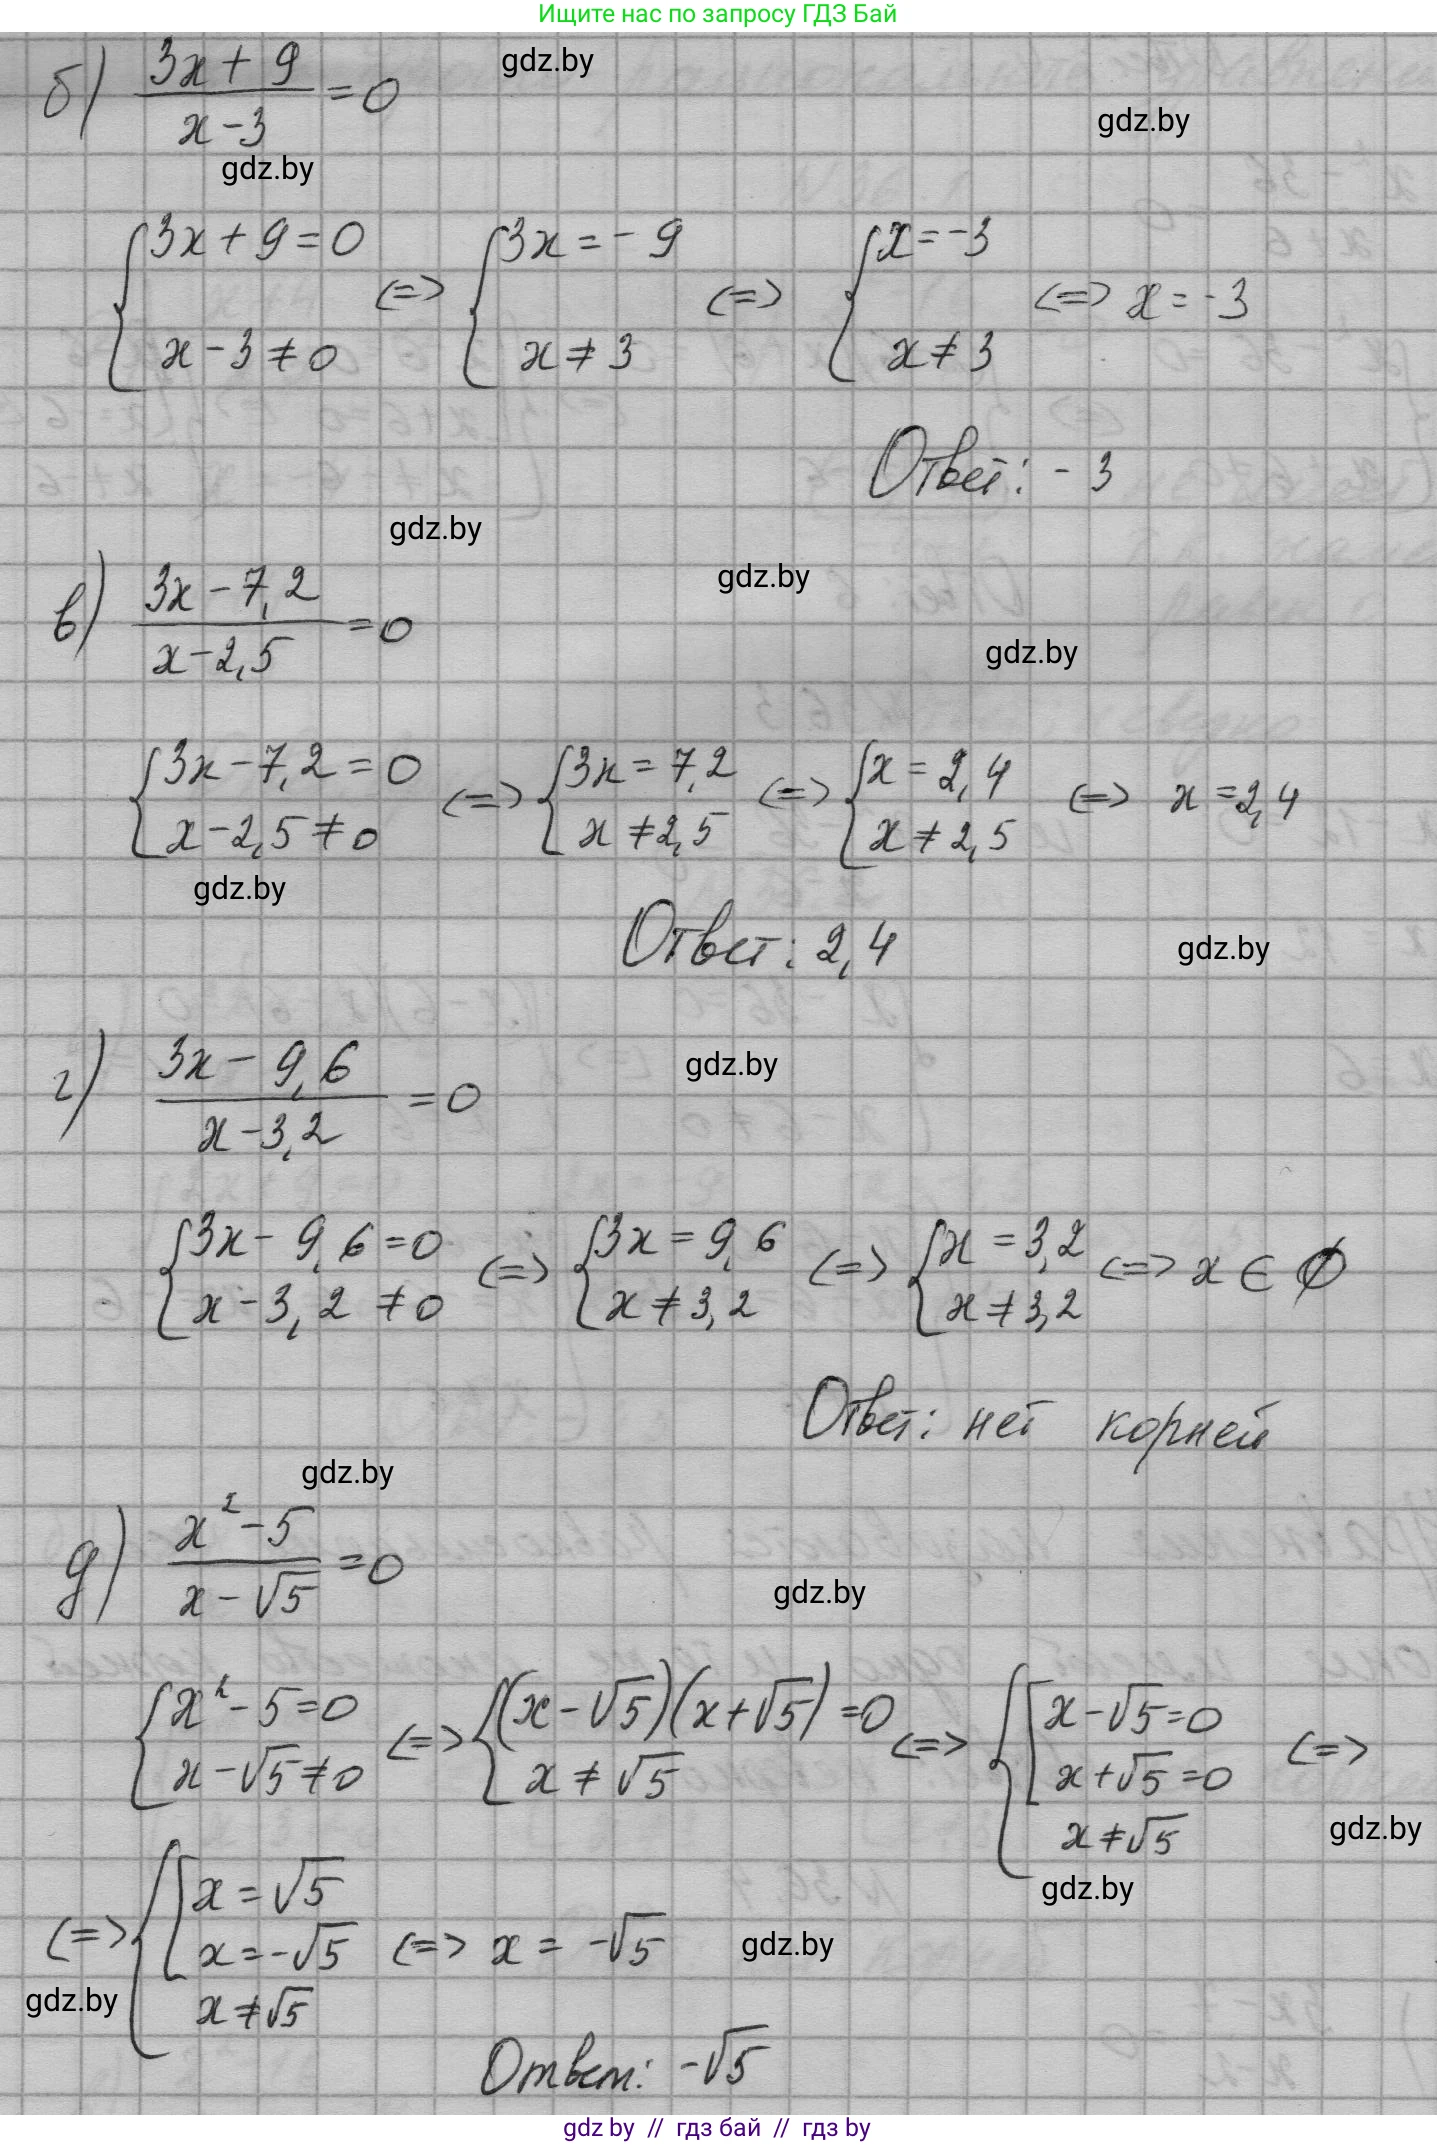 Ищите нас по запросу ГДЗ Бай
б) (3x + 9)/(x - 3) = 0
gdz.by
gdz.by
gdz.by
{3x + 9 = 0; x - 3 ≠ 0 <=> {3x = -9; x ≠ 3 <=> {x = -3; x ≠ 3 <=> x = -3
Ответ: -3
gdz.by
gdz.by
в) (3x - 7,2)/(x - 2,5) = 0
gdz.by
{3x - 7,2 = 0; x - 2,5 ≠ 0 <=> {3x = 7,2; x ≠ 2,5 <=> {x = 2,4; x ≠ 2,5 <=> x = 2,4
gdz.by
Ответ: 2,4
gdz.by
г) (3x - 9,6)/(x - 3,2) = 0
gdz.by
{3x - 9,6 = 0; x - 3,2 ≠ 0 <=> {3x = 9,6; x ≠ 3,2 <=> {x = 3,2; x ≠ 3,2 <=> x ∈ ∅
Ответ: нет корней
gdz.by
д) (x² - 5)/(x - √5) = 0
gdz.by
{x² - 5 = 0; x - √5 ≠ 0 <=> {(x - √5)(x + √5) = 0; x ≠ √5 <=> {[x - √5 = 0; x + √5 = 0; x ≠ √5 <=>
gdz.by
gdz.by
<=> {[x = √5; x = -√5; x ≠ √5 <=> x = -√5
gdz.by
gdz.by
Ответ: -√5
gdz by // гдз бай // гдз by